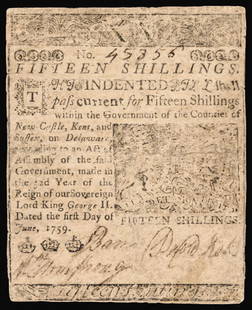 No. 45356
FIFTEEN SHILLINGS.
THIS INDENTED BILL shall
pass current for Fifteen Shillings
within the Government of the Counties of
New Castle, Kent, and
Sussex, on Delaware,
according to an Act of
Assembly of the said
Government, made in
the 32d Year of the
Reign of our Sovereign
Lord King George II.
Dated the first Day of
June, 1759.
FIFTEEN SHILLINGS